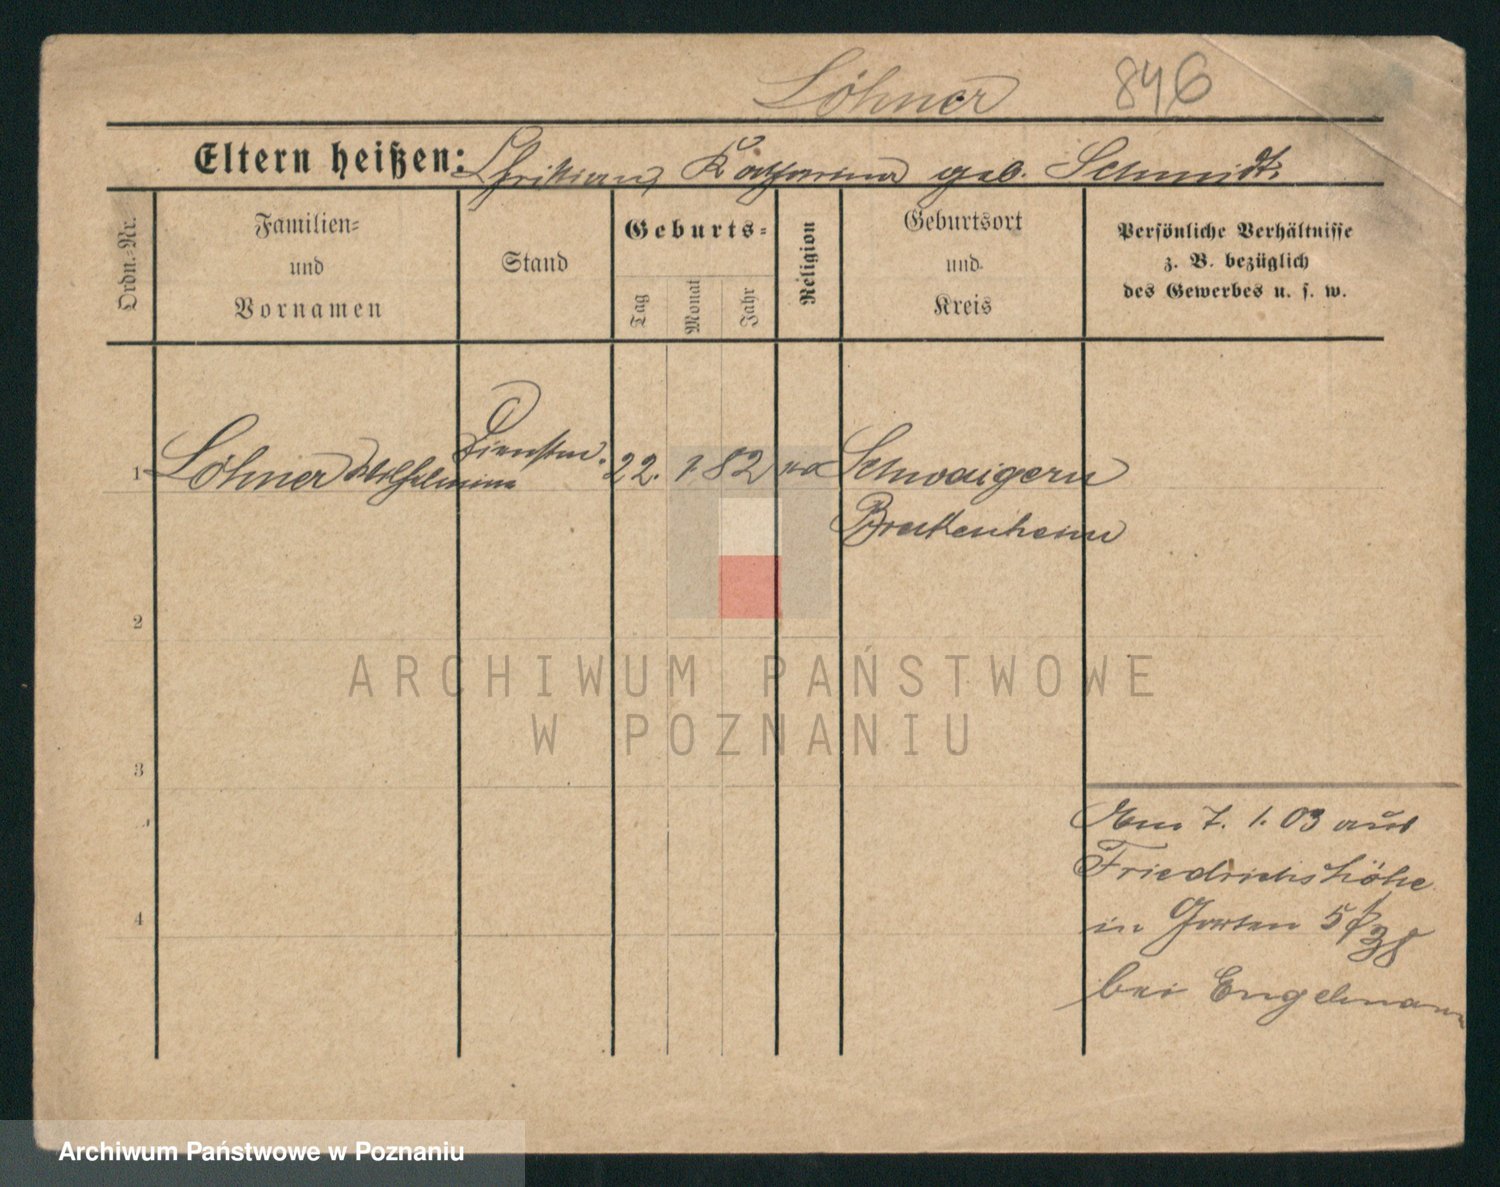 Löhner 846
Eltern heißen: Christian, Katharina geb. Schmidt.
Ordn.-Nr.
Familien-
und
Vornamen
Stand
Geburts-
Tag
Monat
Jahr
Religion
Geburtsort
und
Kreis
Persönliche Verhältnisse
z. B. bezüglich
des Gewerbes u. s. w.
1 Löhner Wilhelmine 22. 1 82 Schwaigern
Brackenheim
2
3
4
Am 7. 1. 03 aus
Friedrichshöhe
in Garten
bei Engelmann
ARCHIWUM PAŃSTWOWE
W POZNANIU
Archiwum Państwowe w Poznaniu